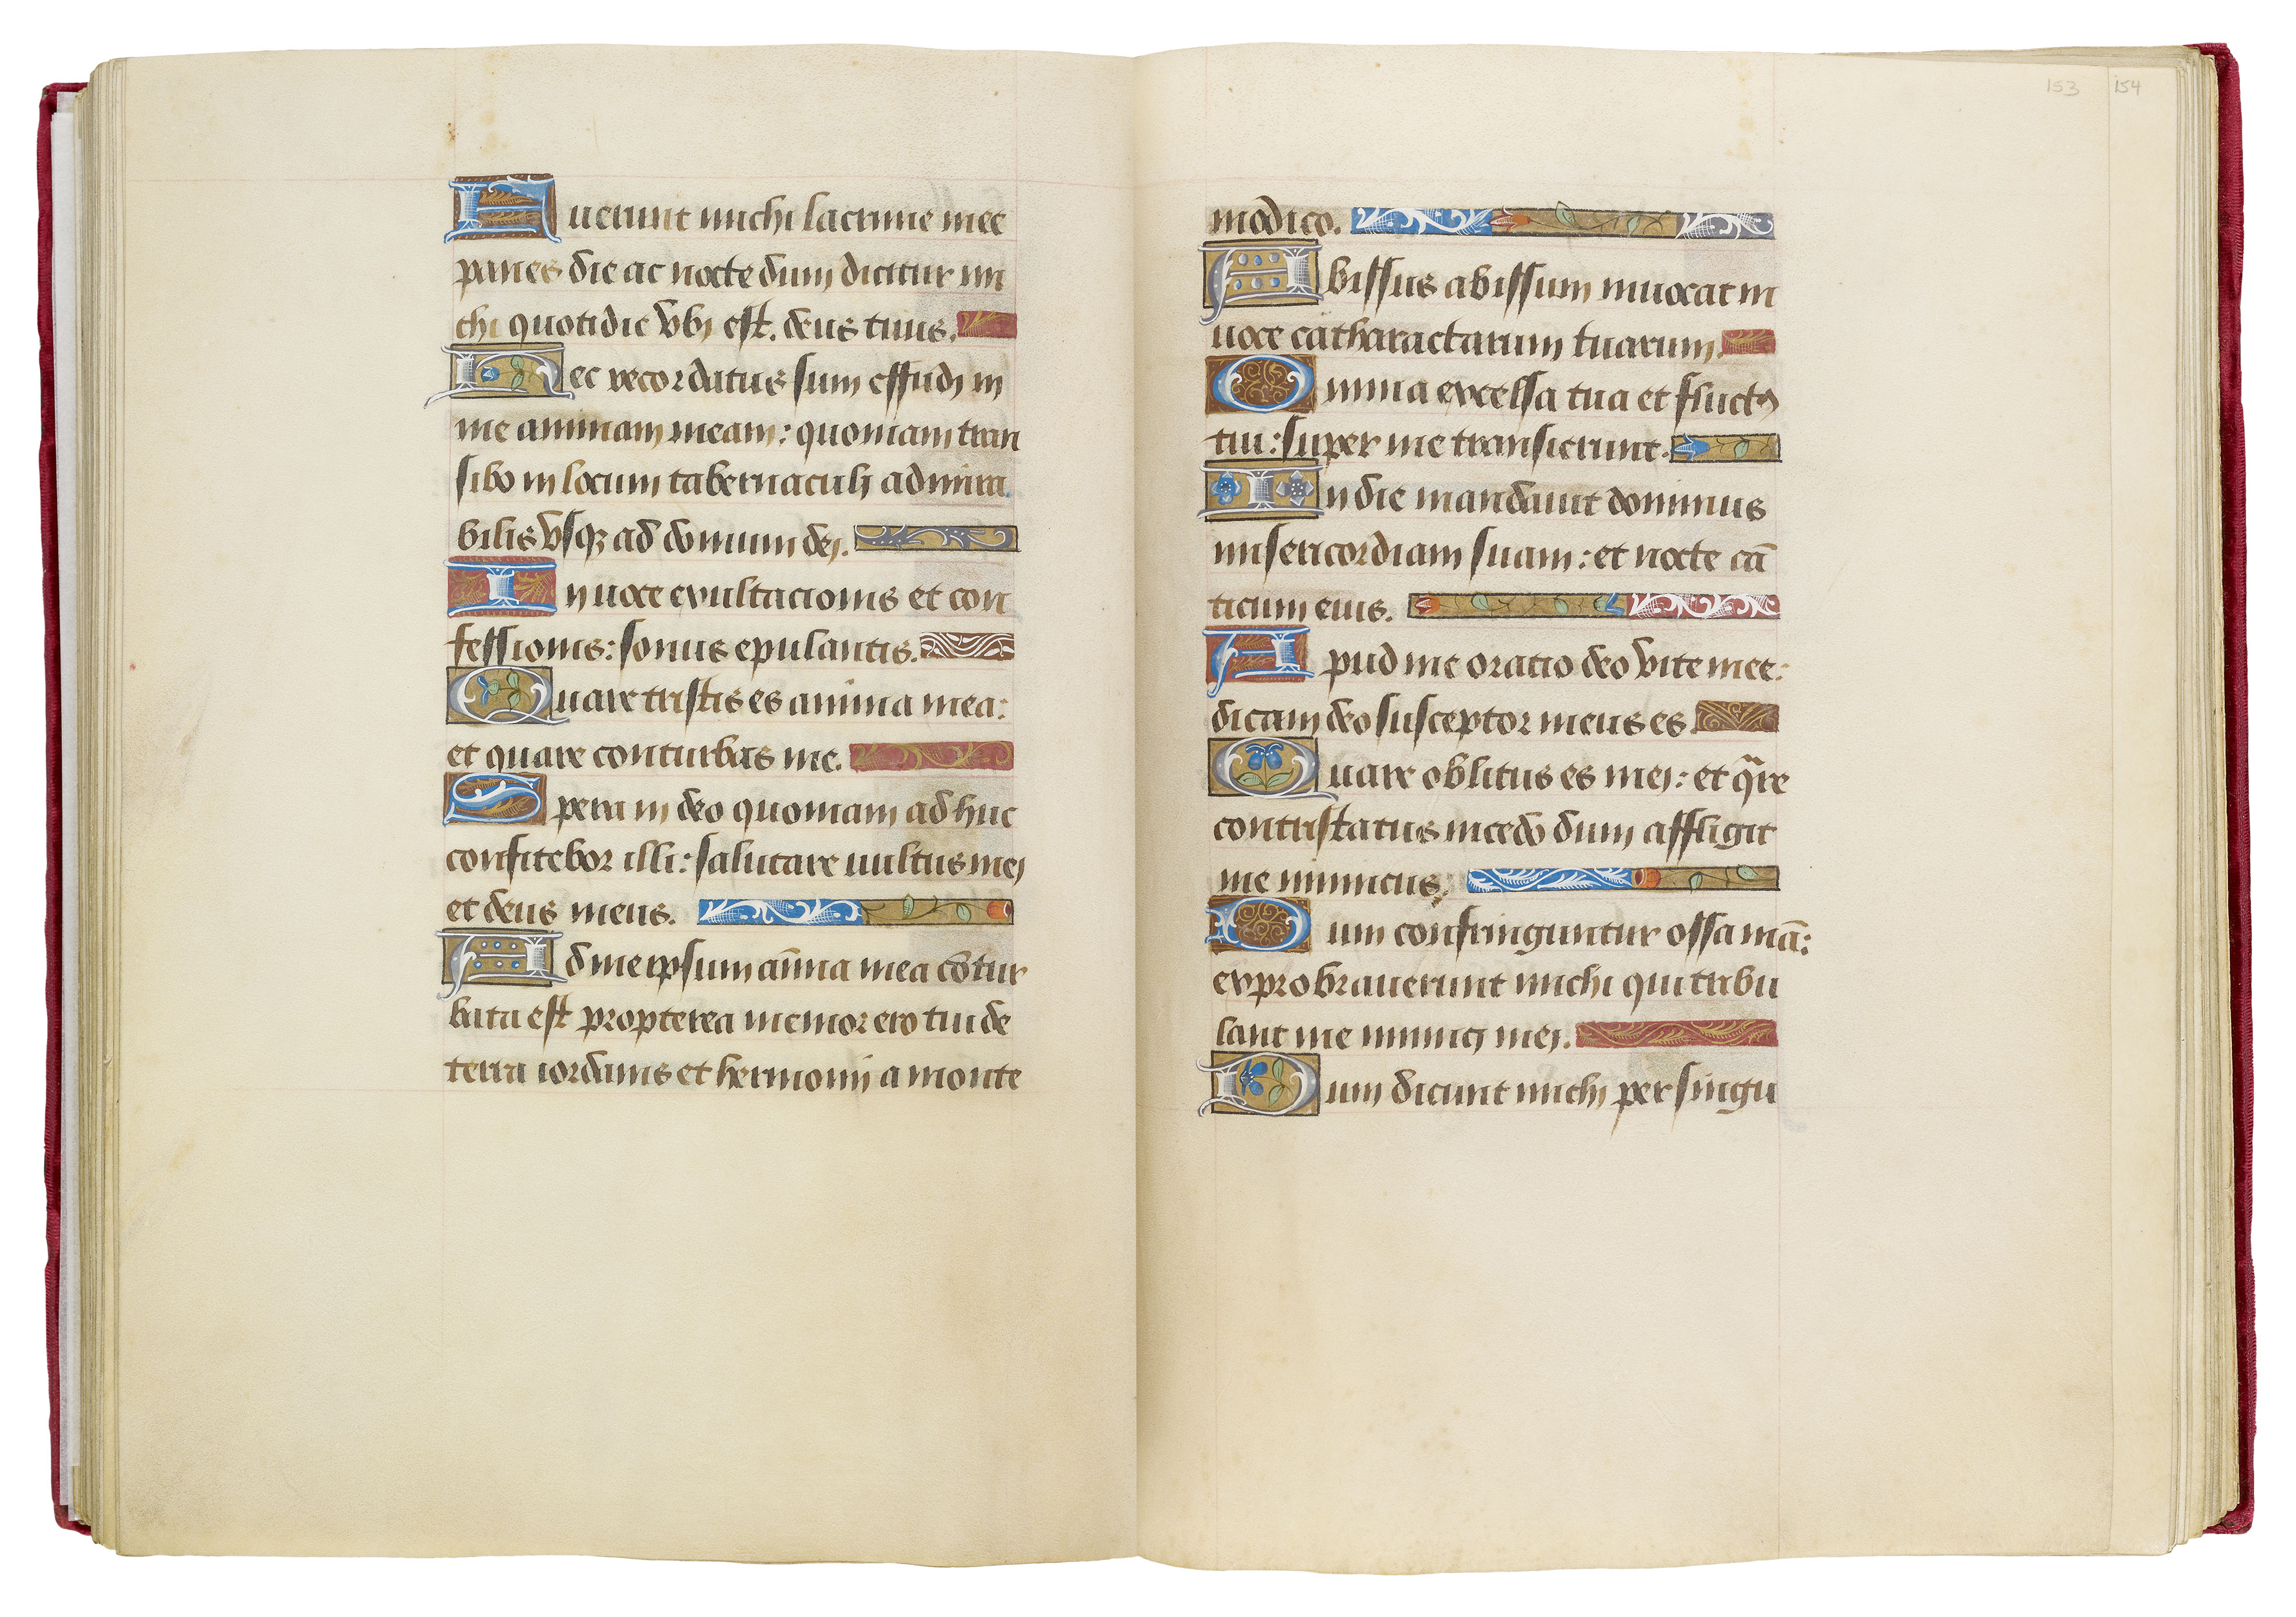 Fuerunt michi lacrime mee
panes die ac nocte dum dicitur mi
chi quotidie vbi est. deus tuus.
Hec recordatus sum effudi in
me animam meam: quoniam tran
sibo in locum tabernaculi admira
bilis vsqꝫ ad domum dei.
In uoce exultacionis et con
fessionis: sonus epulantis.
Quare tristis es anima mea:
et quare conturbas me.
Spera in deo quoniam adhuc
confitebor illi: salutare uultus mei
et deus meus.
Ad me ipsum aīma mea cōtur
bata est propterea memor ero tui de
terra iordanis et hermonij a monte
153
154
modico.
Abissus abissum inuocat in
uoce catharactarum tuarum.
Omnia excelsa tua et fluctꝰ
tui: super me transierunt.
In die mandauit dominus
misericordiam suam: et nocte cā
ticum eius.
Apud me oratio deo vite mee:
dicam deo susceptor meus es.
Quare oblitus es mei: et qͣre
contristatus incedo dum affligit
me inimicus.
Dum confringuntur ossa mā:
exprobrauerunt michi qui tribu
lant me inimici mei.
Dum dicunt michi per singu